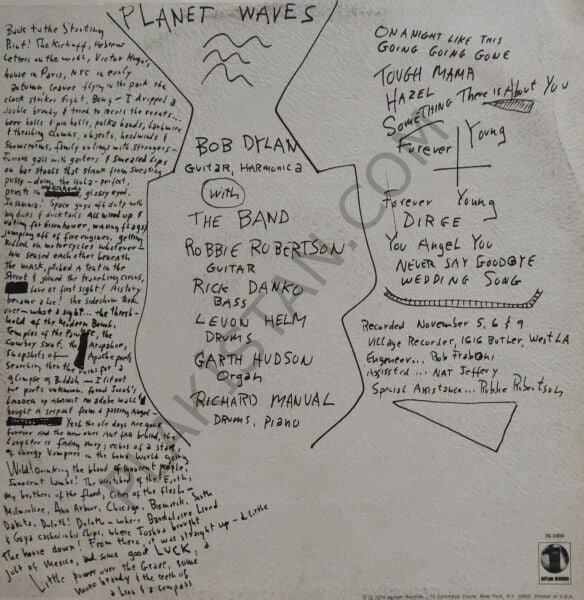 PLANET WAVES
Back to the Starting
Point! The Kickoff, Hebrew
Letters on the walls, Victor Hugo's
house in Paris, NYC in early
autumn, leaves flying in the park, the
clock strikes Eight, Bong - I dropped a
double brandy & tried to recall the events...
beer halls & pin balls, polka bands, barbwire
& thrashing clowns, objects, headwinds &
snowstorms, family outings with strangers -
Furious gals with garters & smeared Lips
on bar stools that stank from sweating
pussy - doing the Hula - perfect,
priests in overhauls, glassy eyed,
Insomnia! Space guys off duty with
big dicks & ducktails All wired up &
voting for Eisenhower, waving flags &
jumping off of fire engines, getting
killed on motorcycles whatever -
We sensed each other beneath
the mask, pitched a tent in the
Street & joined the traveling circus,
Love at first sight! History
became a Lie! the sideshow took
over - what a sight... the thresh-
hold of the Modern Bomb,
Temples of the Pawnee, the
Cowboy Saint, the Arapahoe,
snapshots of Apache poets
searching thru the ruins for a
glimpse of Buddah - I lit out
for parts unknown, found Jacob's
Ladder up against an adobe wall &
bought a serpent from a passing Angel -
Yeah the ole days are gone
forever And the new ones Aint far behind, the
Laughter is fading away, echos of a star,
of Energy Vampires in the Gone World going
Wild! Drinking the blood of innocent people,
Innocent Lambs! The Wretched of the Earth,
My brothers of the flood, Cities of the flesh -
Milwaukee, Ann Arbor, Chicago, Bismarck, South
Dakota, Duluth! Duluth - where Baudelaire Lived
& Goya cashed in his Chips, where Joshua brought
the house down! From there, it was straight up - a little
jolt of Mexico, and some good LUCK, a
Little power over the Grave, some
more brandy & the teeth of
a Lion & a compass
BOB DYLAN
GUITAR, HARMONICA
With
THE BAND
ROBBIE ROBERTSON
GUITAR
RICK DANKO
BASS
LEVON HELM
DRUMS
GARTH HUDSON
Organ
RICHARD MANUAL
DRUMS, PIANO
ON A NIGHT LIKE THIS
GOING GOING GONE
TOUGH MAMA
HAZEL
SOMETHING There is About You
Forever Young
Forever Young
DIRGE
You Angel You
NEVER SAY GOODBYE
WEDDING SONG
Recorded November 5, 6 & 9
Village Recorder, 1616 Butler, West LA
Engineer... Rob Fraboni
Assisted... NAT Jeffery
Special Assistance... Robbie Robertson
7E-1003
ASYLUM RECORDS
© 1974 Asylum Records, 15 Columbus Circle, New York, N.Y. 10023 Printed in U.S.A.
PAKISTAN.COM